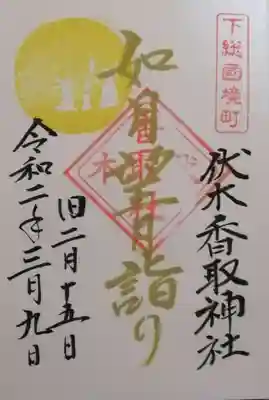 下総國境町
伏木香取神社
如月望月詣り
旧二月十五日
令和二年三月九日